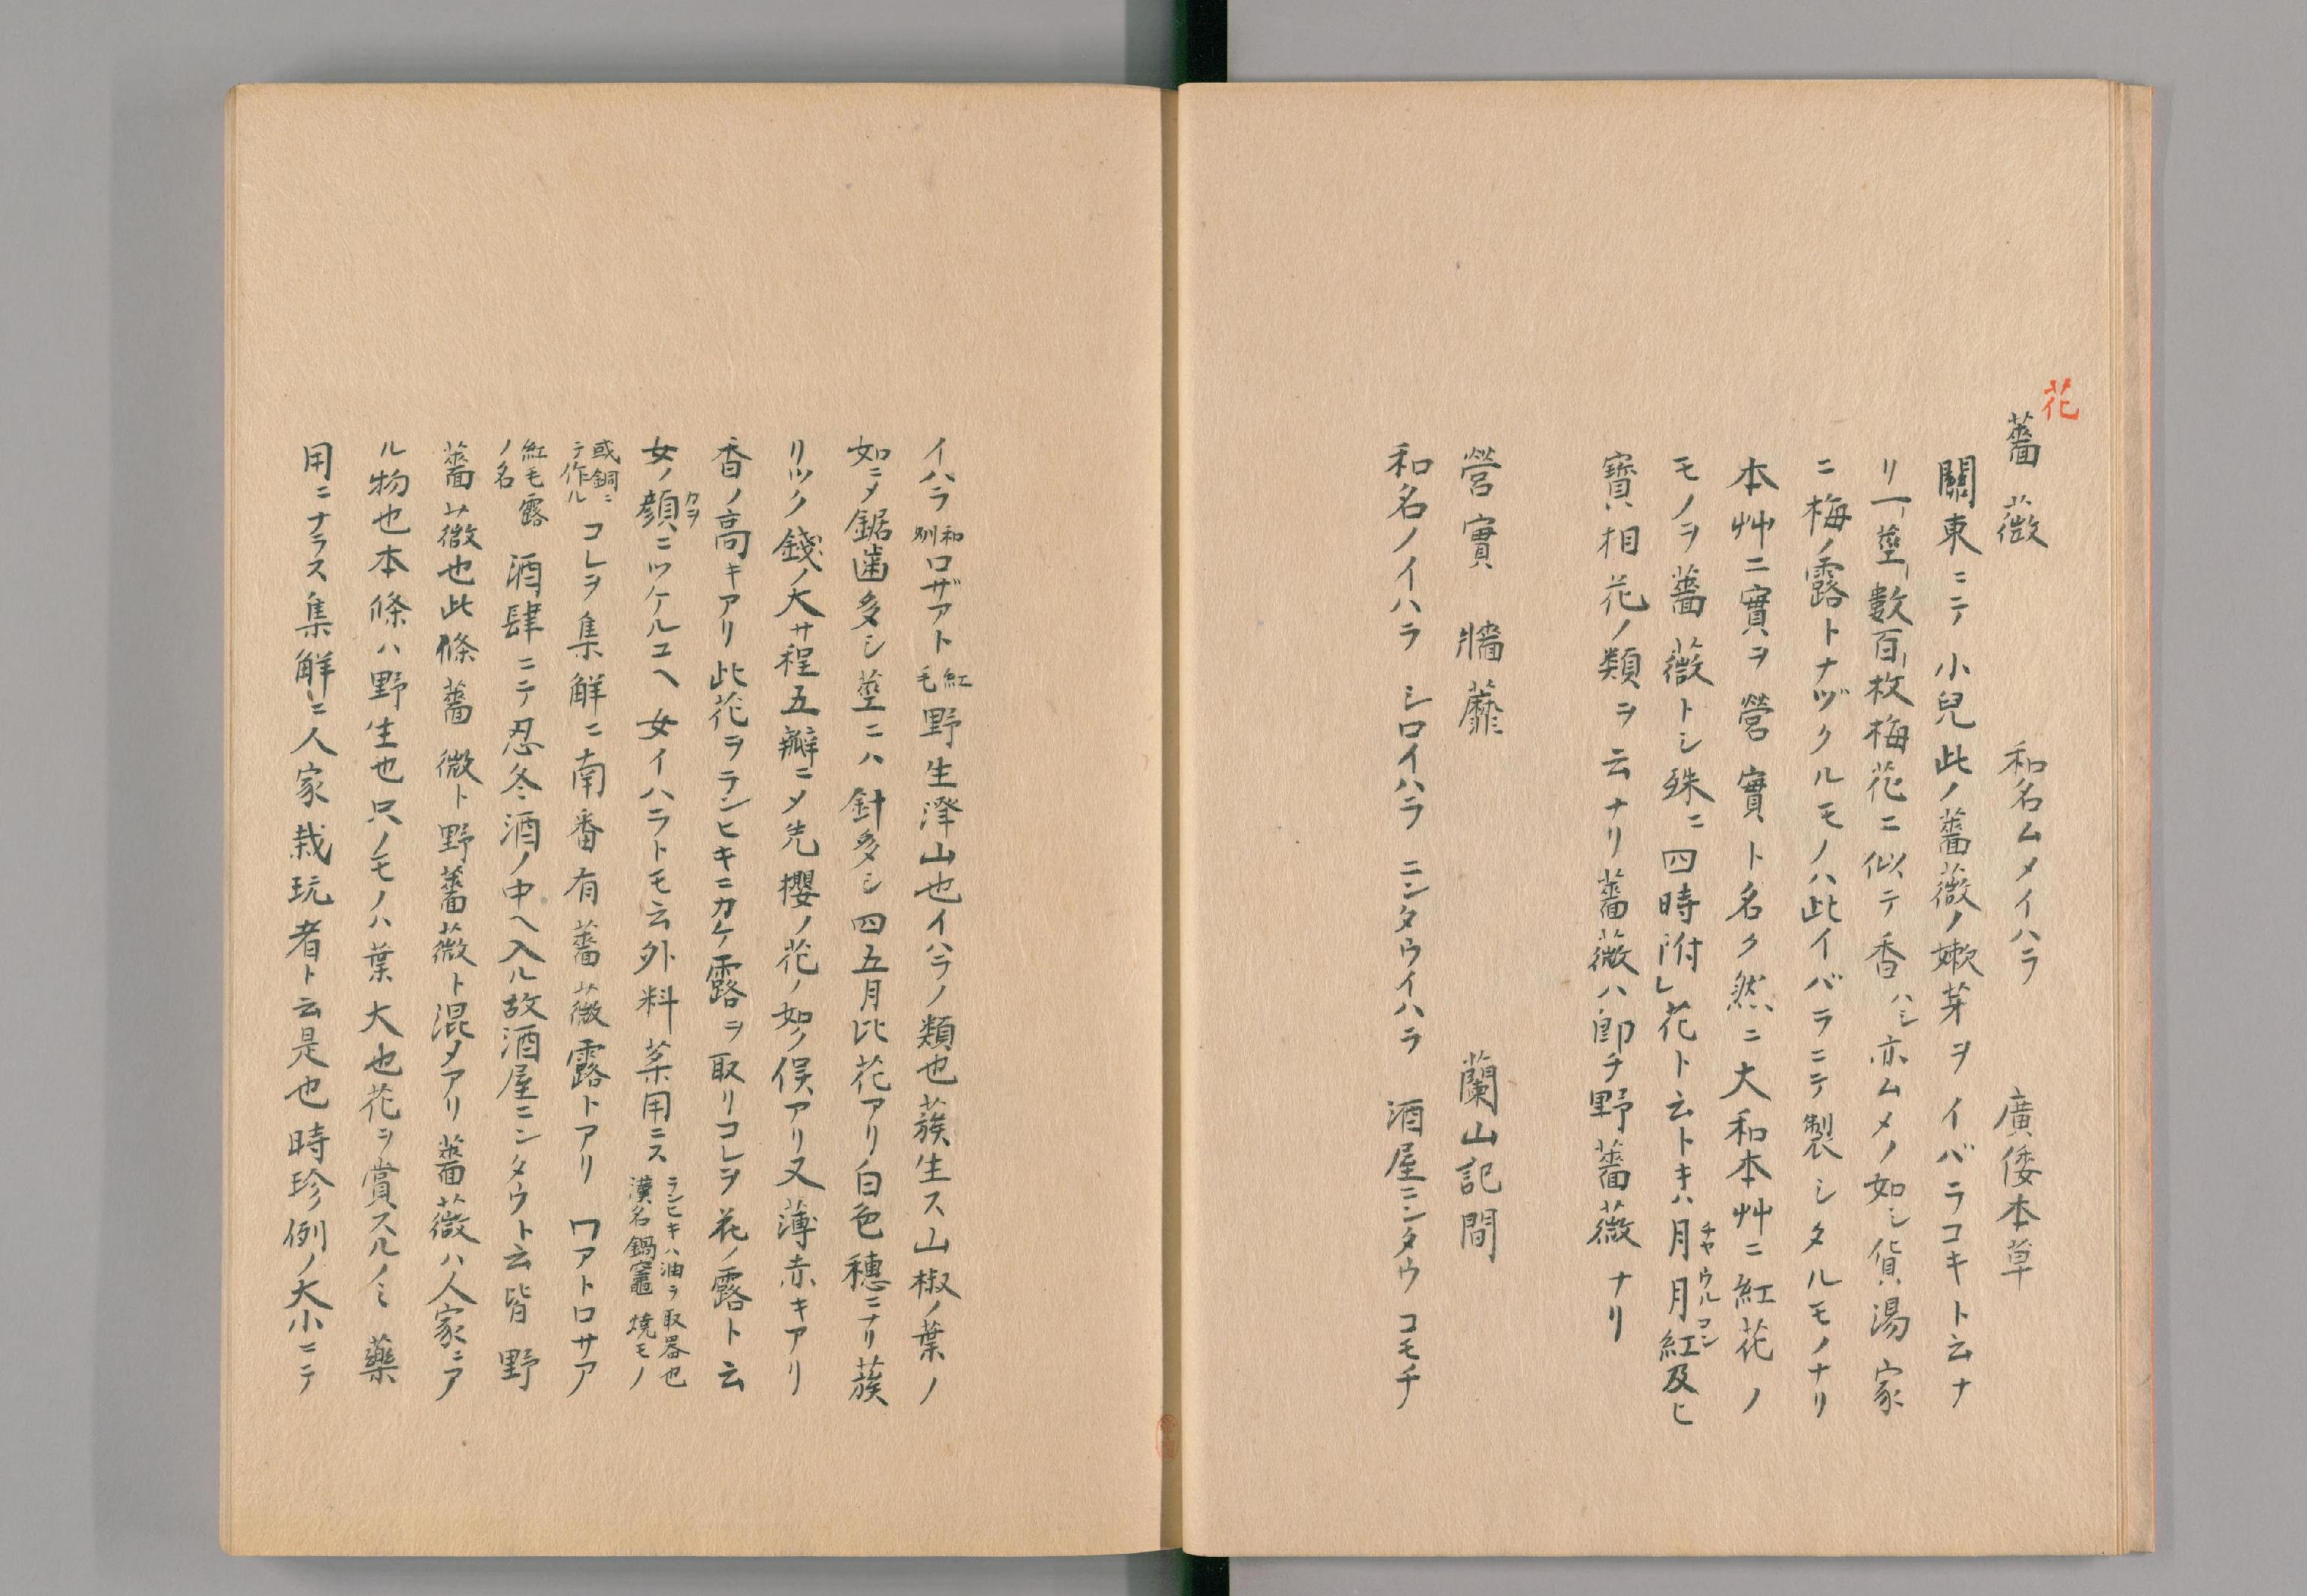 花
薔薇 和名ムメイハラ 廣倭本草
關東ニテ小兒此ノ薔薇ノ嫩芽ヲイバラコキト云ナ
リ一莖數百枚梅花ニ似テ香ハシ亦ムメノ如シ貨湯家
ニ梅ノ露トナヅクルモノハ此イバラニテ製シタルモノナリ
本艸ニ實ヲ營實ト名ク然ニ大和本艸ニ紅花ノ
モノヲ薔薇トシ殊ニ四時附レ花ト云トキハ月月紅及ヒ
チヤウルコン
寶相花ノ類ヲ云ナリ薔薇ハ郎チ野薔薇ナリ
營實 牆蘼 蘭山記聞
和名ノイハラ シロイハラ ニンタウイハラ 酒屋ニンタウ コモチ
イハラ 和別 ロザアト 紅毛 野生澤山也イハラノ類也蔟生ス山椒ノ葉ノ
如ニメ鋸歯多シ莖ニハ針多シ四五月比花アリ白色穗ニナリ蔟
リツク錢ノ大サ程五瓣ニメ先櫻ノ花ノ如ク俣アリ又薄赤キアリ
香ノ高キアリ此花ヲランヒキニカケ露ヲ取リコレヲ花ノ露ト云
女ノ顔ニツケルユヘ女イハラトモ云外料薬用ニス ランヒキハ油ヲ取器也
カヲ
漢名鍋竈 燒モノ
或銅ニ
テ作ル コレヲ集解ニ南番有薔薇露トアリ ワアトロサア
紅毛露
ノ名 酒肆ニテ忍冬酒ノ中ヘ入ル故酒屋ニンタウト云皆野
薔薇也此條薔薇ト野薔薇ト混メアリ薔薇ハ人家ニア
ル物也本條ハ野生也只ノモノハ葉大也花ヲ賞スルノミ藥
用ニナラス集解ニ人家栽玩者ト云是也時珍例ノ大小ニテ